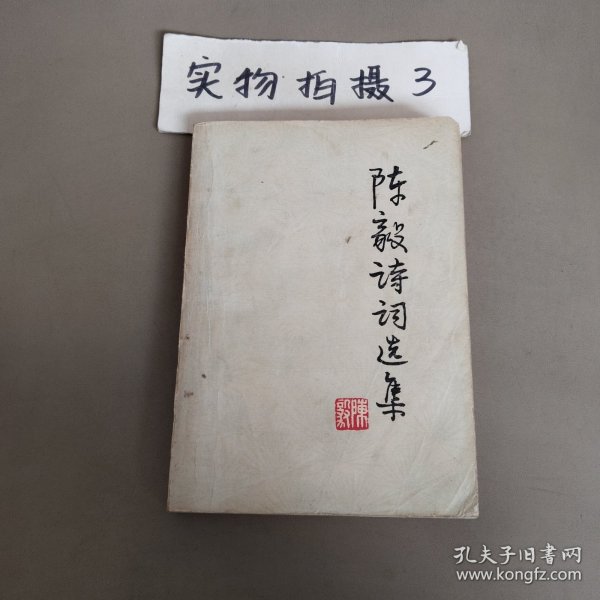 实物拍摄3
陈毅诗词选集
陳毅
孔夫子旧书网
www.kongfz.com